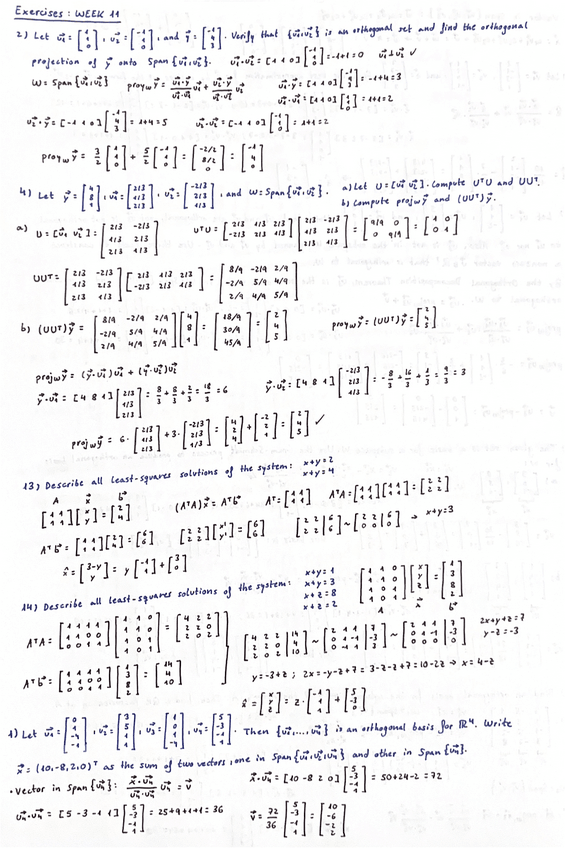 Exercises: WEEK 11
2) Let u₁ = [1 1 0], u₂ = [-1 1 0], and y = [-1 4 3]. Verify that {u₁,u₂} is an orthogonal set and find the orthogonal
projection of y onto Span{u₁,u₂}. u₁·u₂ = [1 1 0][-1 1 0] = -1+1=0 u₁⊥u₂ ✓
W = Span{u₁,u₂} proy_W y = (y·u₁)/(u₁·u₁) u₁ + (u₂·y)/(u₂·u₂) u₂ u₁·y = [1 1 0][-1 4 3] = -1+4=3
u₁·u₁ = [1 1 0][1 1 0] = 1+1=2
u₂·y = [-1 1 0][-1 4 3] = 1+4=5 u₂·u₂ = [-1 1 0][-1 1 0] = 1+1=2
proy_W y = 3/2 [1 1 0] + 5/2 [-1 1 0] = [-2/2 8/2 0] = [-1 4 0]
4) Let y = [4 8 1], u₁ = [2/3 1/3 2/3], u₂ = [-2/3 2/3 1/3], and W=Span{u₁,u₂}. a) Let U=[u₁ u₂]. Compute UᵀU and UUᵀ.
b) Compute projw y and (UUᵀ)y.
a) U=[u₁ u₂] = [2/3 -2/3; 1/3 2/3; 2/3 1/3] UᵀU = [2/3 1/3 2/3; -2/3 2/3 1/3][2/3 -2/3; 1/3 2/3; 2/3 1/3] = [9/9 0; 0 9/9] = [1 0; 0 1]
UUᵀ = [2/3 -2/3; 1/3 2/3; 2/3 1/3][2/3 1/3 2/3; -2/3 2/3 1/3] = [8/9 -2/9 2/9; -2/9 5/9 4/9; 2/9 4/9 5/9]
b) (UUᵀ)y = [8/9 -2/9 2/9; -2/9 5/9 4/9; 2/9 4/9 5/9][4 8 1] = [18/9 30/9 45/9] = [2 4 5] proy_W y = (UUᵀ)y = [2 4 5]
proj_W y = (y·u₁)u₁ + (y·u₂)u₂
y·u₁ = [4 8 1][2/3 1/3 2/3] = 8/3 + 8/3 + 2/3 = 18/3 = 6 y·u₂ = [4 8 1][-2/3 2/3 1/3] = -8/3 + 16/3 + 1/3 = 9/3 = 3
proj_W y = 6·[2/3 1/3 2/3] + 3·[-2/3 2/3 1/3] = [4 2 4] + [-2 2 1] = [2 4 5] ✓
13) Describe all least-squares solutions of the system: x+y=2
x+y=4
A x b
[1 1; 1 1][x y] = [2 4] (AᵀA)x = Aᵀb Aᵀ = [1 1; 1 1] AᵀA = [1 1; 1 1][1 1; 1 1] = [2 2; 2 2]
Aᵀb = [1 1; 1 1][2 4] = [6 6] [2 2; 2 2][x y] = [6 6] [2 2 6; 2 2 6] ~ [2 2 6; 0 0 0] → x+y=3
x̂ = [3-y y] = y[-1 1] + [3 0]
14) Describe all least-squares solutions of the system: x+y=1
x+y=3
x+z=8
x+z=2
[1 1 0; 1 1 0; 1 0 1; 1 0 1][x y z] = [1 3 8 2]
A x b
AᵀA = [1 1 1 1; 1 1 0 0; 0 0 1 1][1 1 0; 1 1 0; 1 0 1; 1 0 1] = [4 2 2; 2 2 0; 2 0 2]
[4 2 2 14; 2 2 0 4; 2 0 2 10] ~ [2 1 1 7; 0 1 -1 -3; 0 -1 1 3] ~ [2 1 1 7; 0 1 -1 -3; 0 0 0 0] 2x+y+z=7
y-z=-3
Aᵀb = [1 1 1 1; 1 1 0 0; 0 0 1 1][1 3 8 2] = [14 4 10]
y=-3+z ; 2x=-y-z+7=3-z-z+7=10-2z → x=4-z
x̂ = [x y z] = z·[-1 1 1] + [5 -3 0]
1) Let u₁ = [0 1 -4 -1], u₂ = [3 5 1 1], u₃ = [1 0 1 -4], u₄ = [5 -3 -1 1]. Then {u₁,...,u₄} is an orthogonal basis for ℝ⁴. Write
x = (10,-8,2,0)ᵀ as the sum of two vectors, one in Span{u₁,u₂,u₃} and other in Span{u₄}.
· Vector in Span{u₄}: (x·u₄)/(u₄·u₄) u₄ = v x·u₄ = [10 -8 2 0][5 -3 -1 1] = 50+24-2=72
u₄·u₄ = [5 -3 -1 1][5 -3 -1 1] = 25+9+1+1=36 v = 72/36 [5 -3 -1 1] = [10 -6 -2 2]